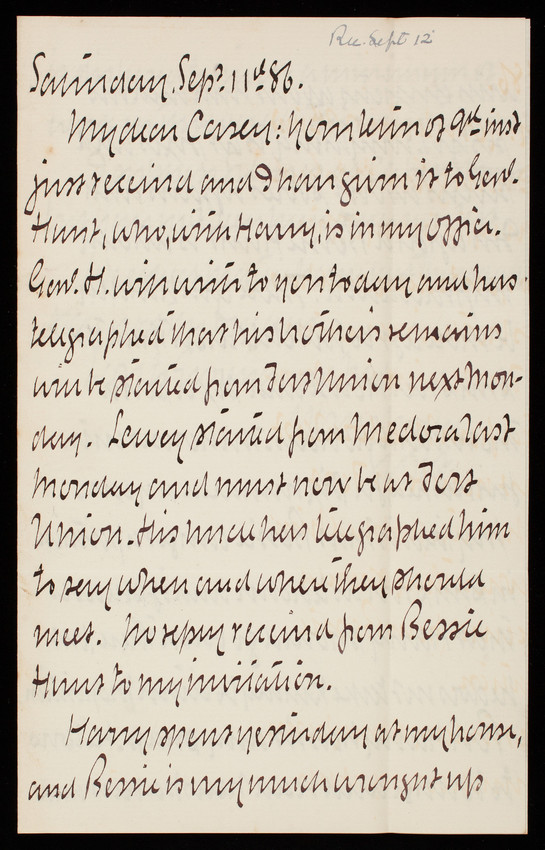 Rec. Sept 12
Saturday, Sept. 11th 86.
My dear Casey: Your letter of 9th inst
just received and I have given it to Genl.
Hunt, who, with Harry, is in my office.
Genl. H. will write to you today and has
telegraphed that his brother's remains
will be started from Fort Union next Mon-
day. Lewey started from Medora last
Monday and must now be at Fort
Union. His uncle has telegraphed him
to say when and where they should
meet. No reply received from Bessie
Hunt to my invitation.
Harry spent yesterday at my house,
and Bessie is very much wrought up